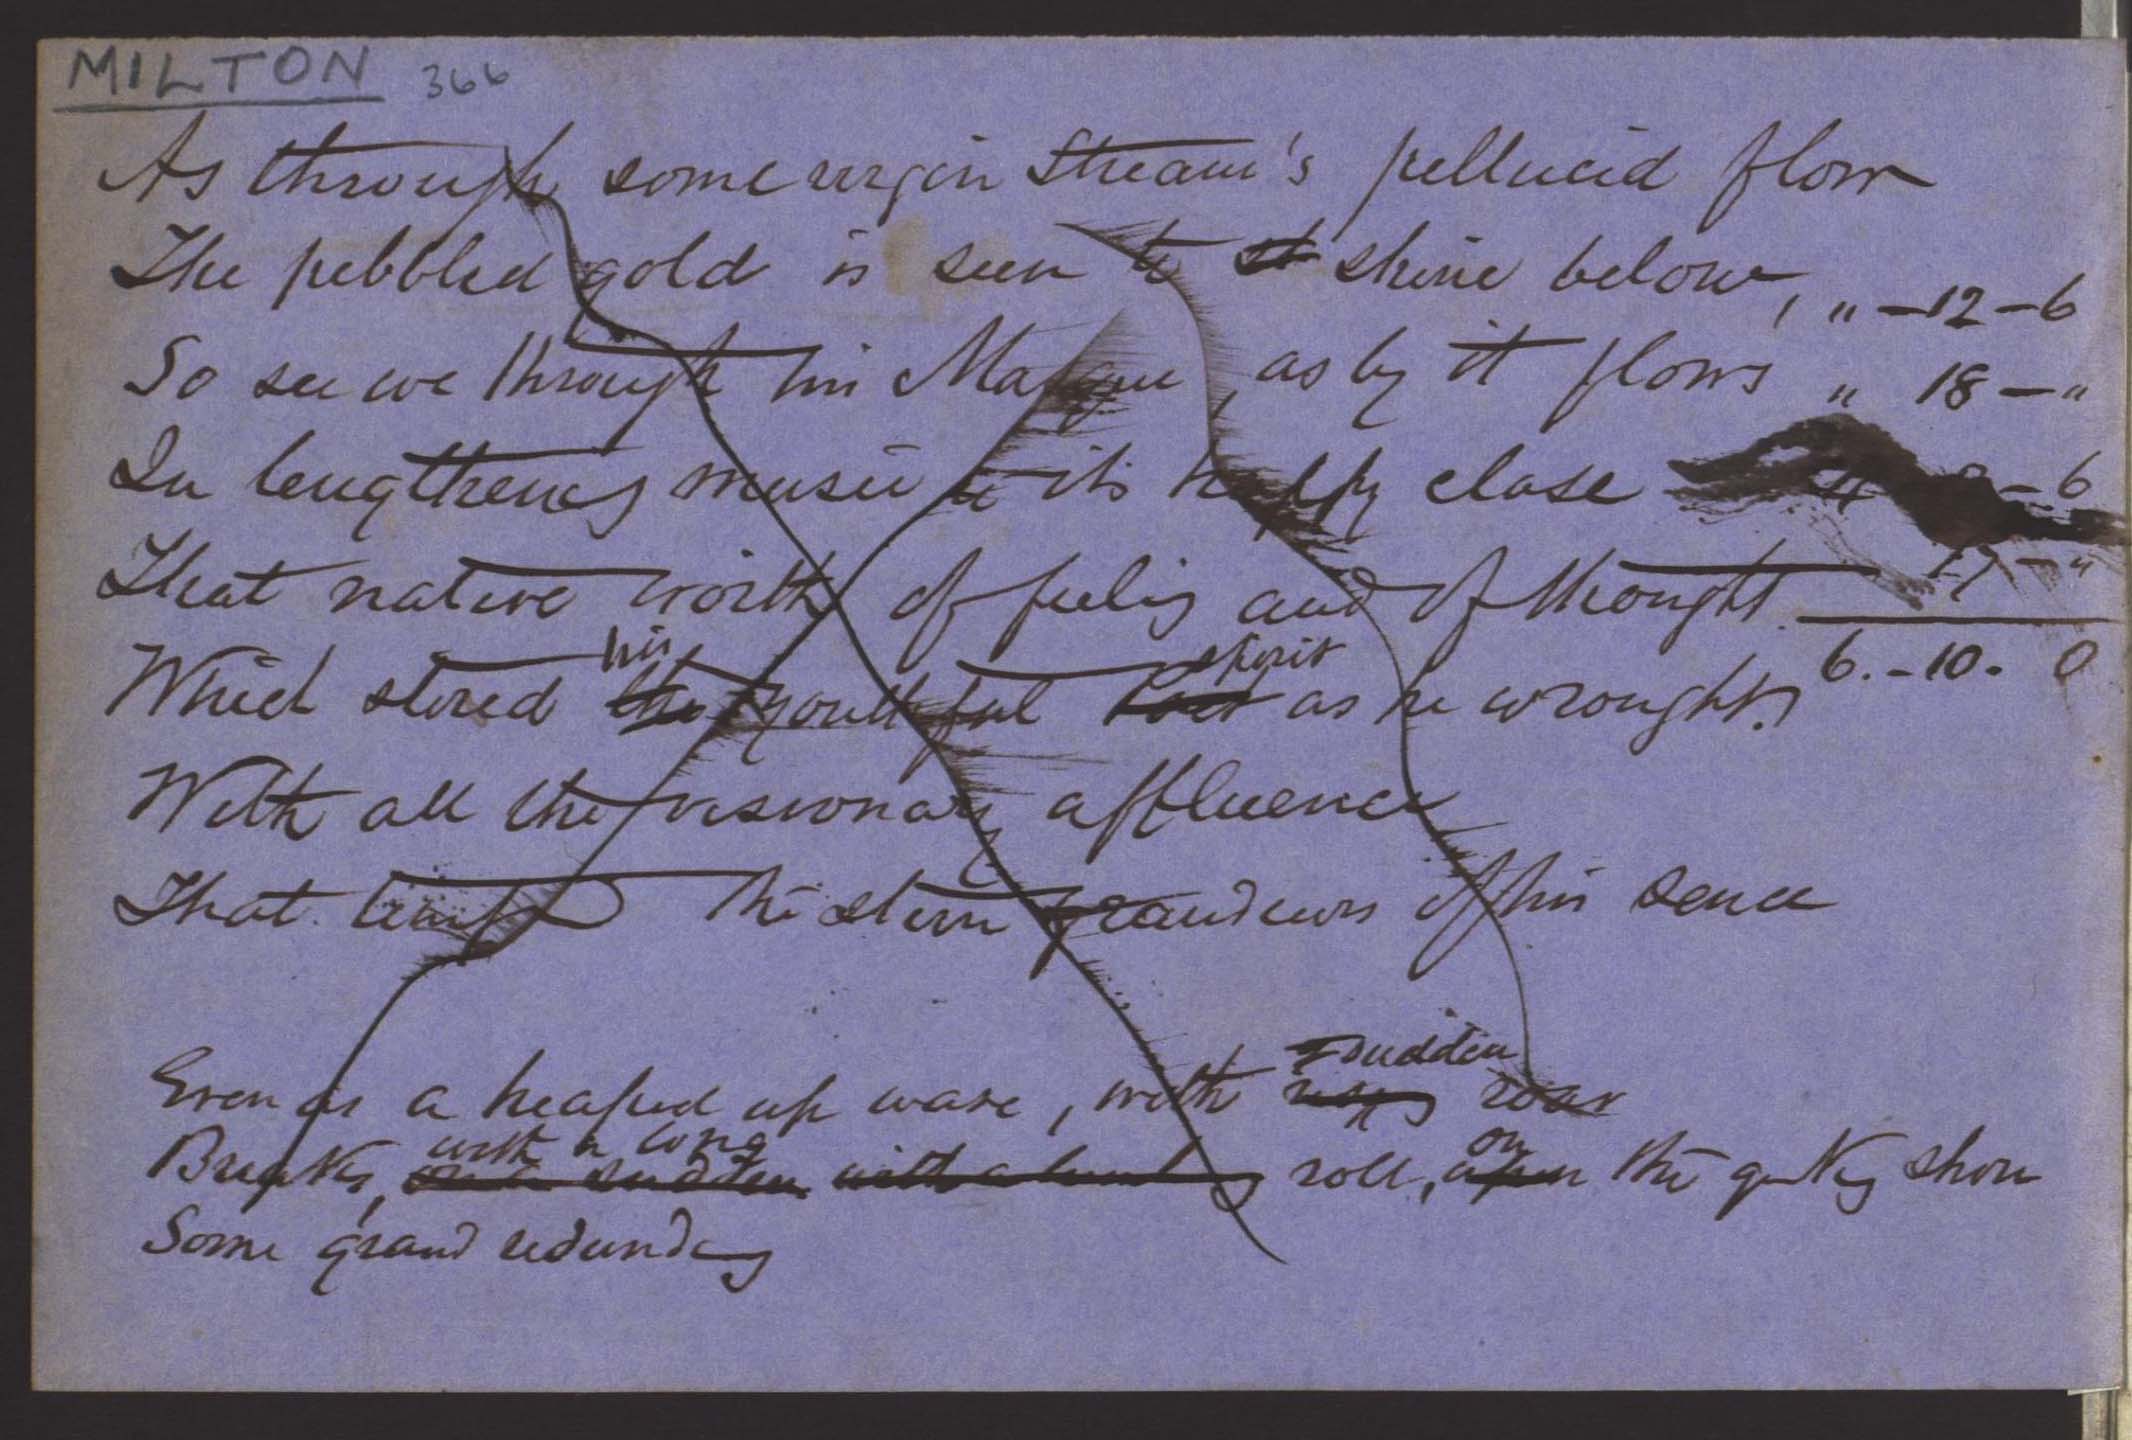 MILTON 366
As through some virgin Stream's pellucid flow
The pebbled gold is seen to st shine below, „ -12-6
So see we through his Masque, as by it flows „ 18-„
In lengthening music to its happy close - 6
That native worth of feeling and of thought 17 - „
his spirit
Which stored the youthful as he wrought. 6.-10. 0
With all the visionary affluence
That the stern grandeurs of his sence
sudden
Even as a heaped up wave, with roar
with a long on
Breaks, sudden with a roll, upon the shore
Some grand redundcy